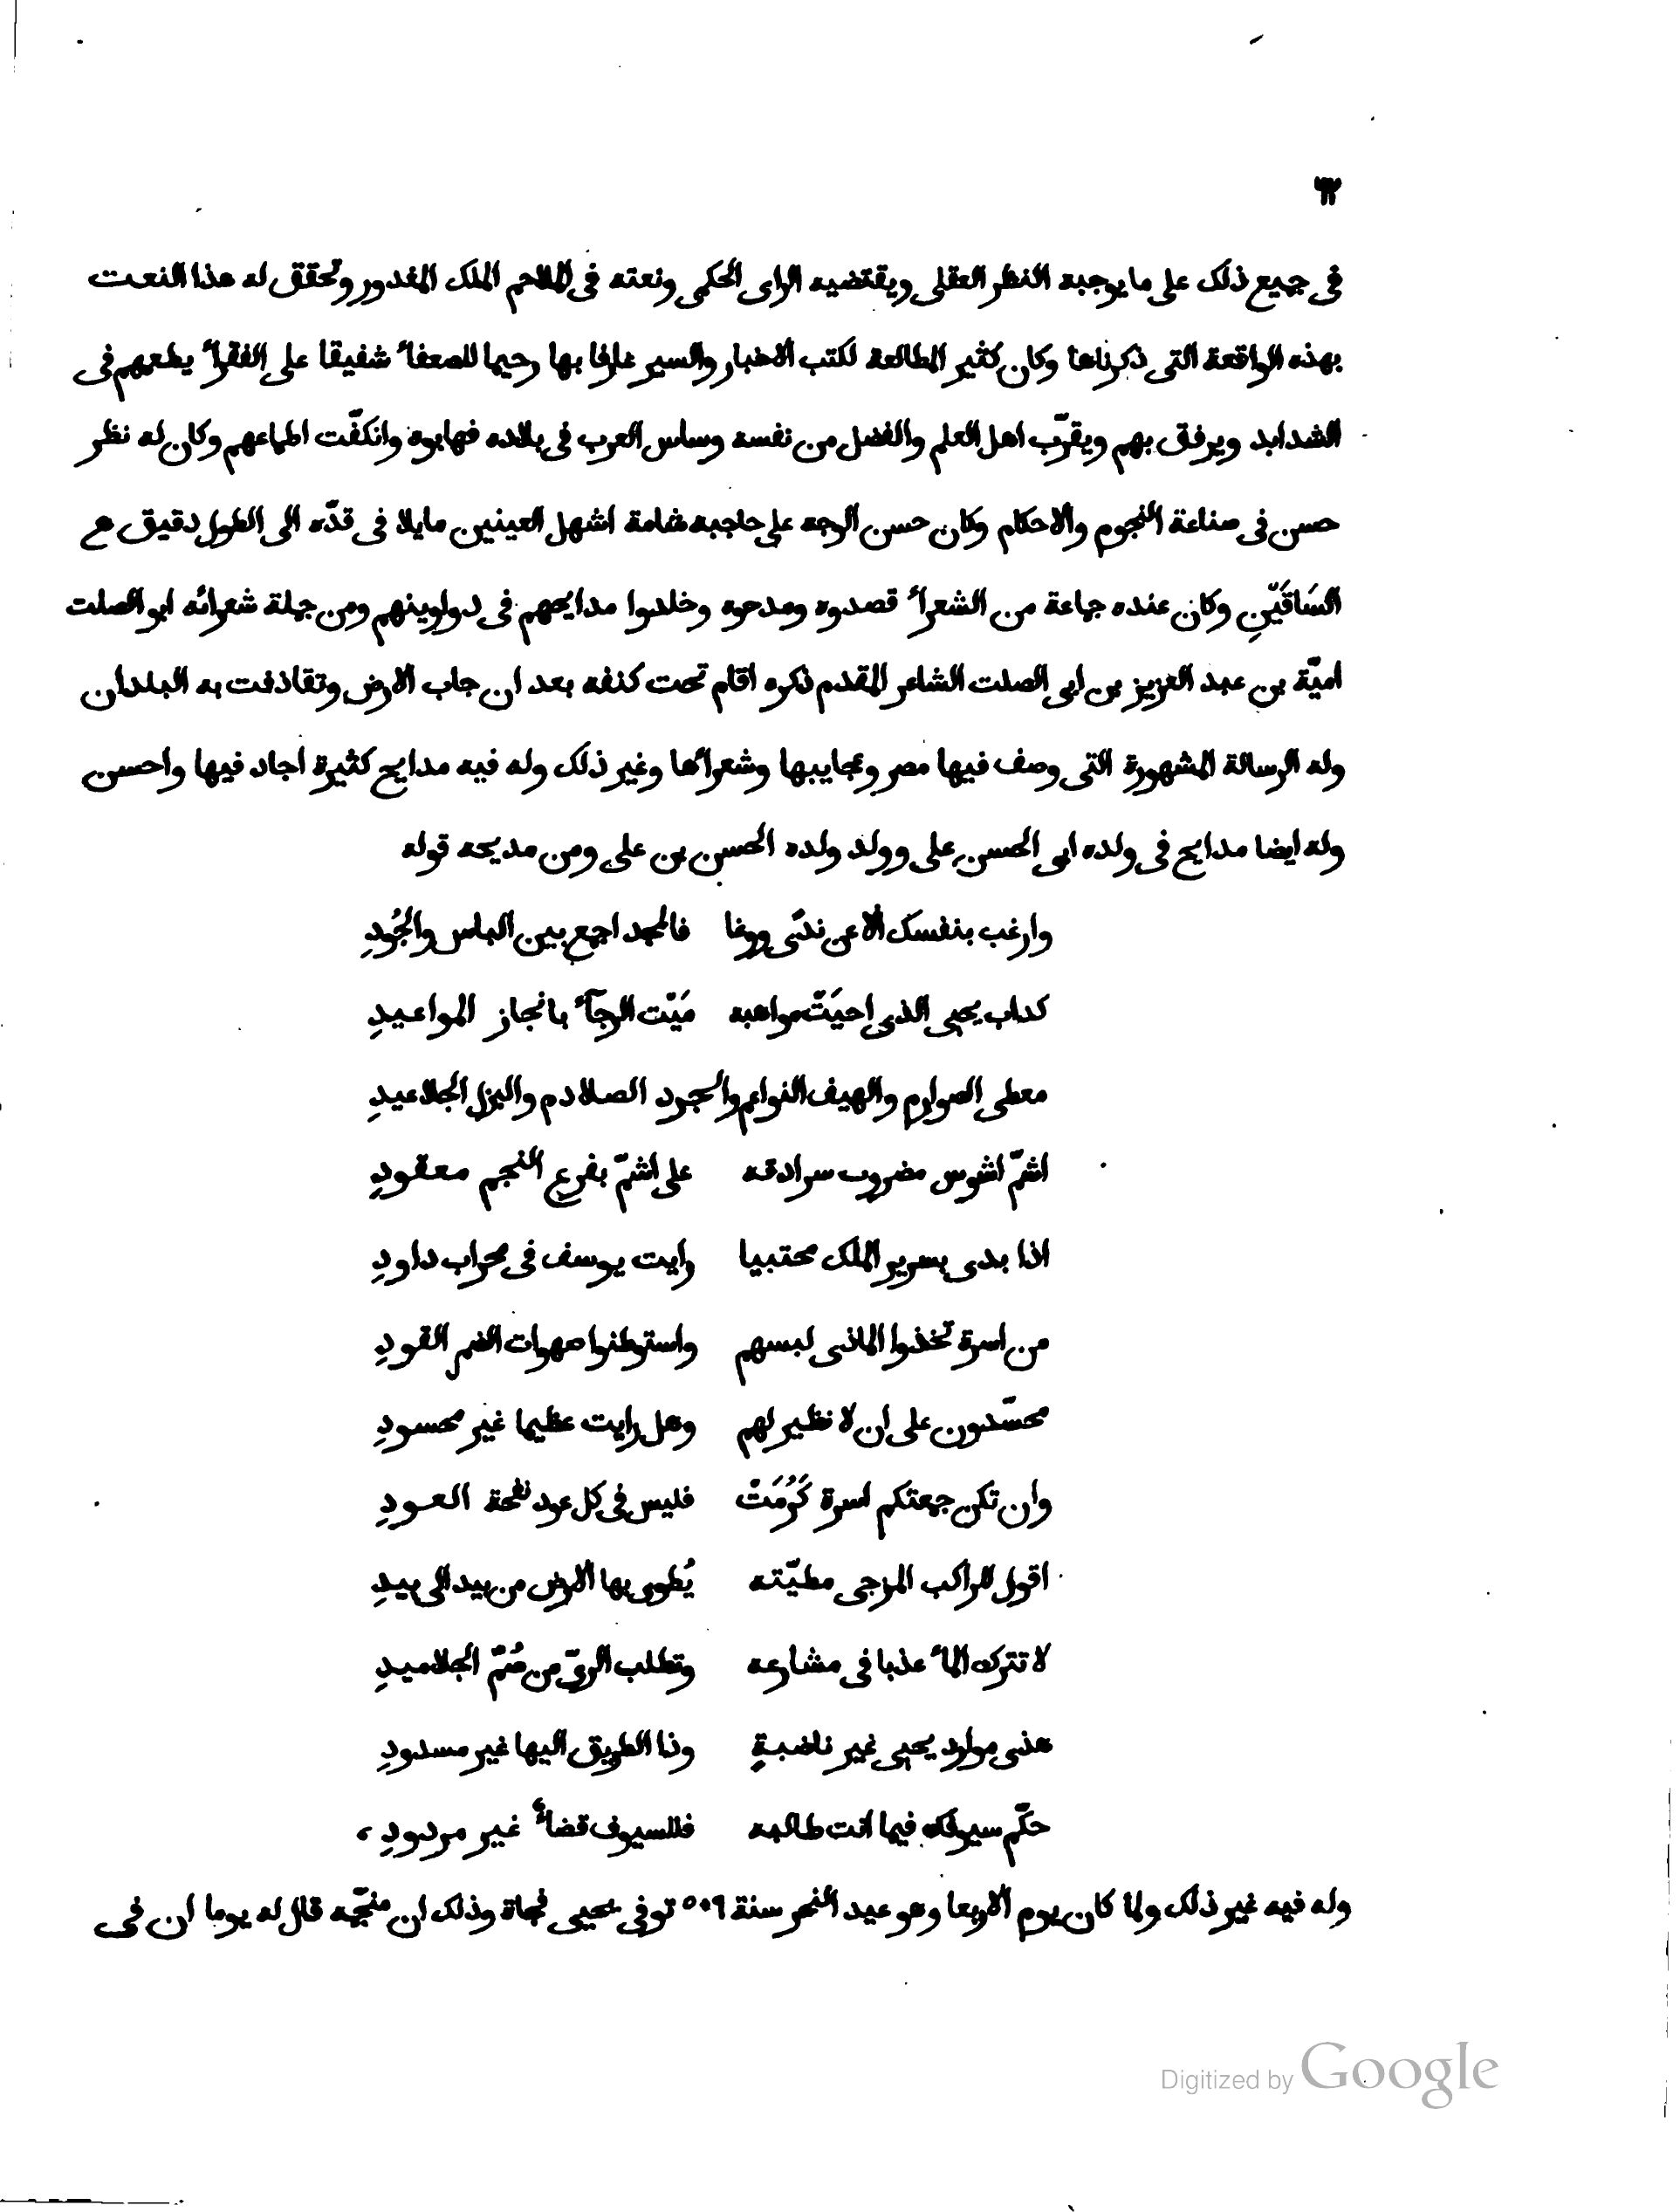 ٣٢
فى جميع ذلك على ما يوجبه النظر العقلى ويقتضيه الراى الحكمى ونعته فى الملاحم الملك المغدور وتحقق له هذا النعت
بهذه الواقعة التى ذكرناها وكان كثير المطالعة لكتب الاخبار والسير عارفا بها رحيما للضعفاء شفيقا على الفقراء يطعمهم فى
الشدايد ويرفق بهم ويقرّب اهل العلم والفضل من نفسه وساس العرب فى بلاده فهابوه وانكفّت اطماعهم وكان له نظر
حسن فى صناعة النجوم والاحكام وكان حسن الوجه على حاجبه شامة اشهل العينين مايلا فى قدّه الى الطول دقيق
السَاقَيْنِ وكان عنده جماعة من الشعراء قصدوه ومدحوه وخلدوا مدايحهم فى دواوينهم ومن جملة شعرائه ابو الصلت
اميّة بن عبد العزيز بن ابى الصلت الشاعر المقدم ذكره اقام تحت كنفه بعد ان جاب الارض وتقاذفت به البلدان
وله الرسالة المشهورة التى وصف فيها مصر وعجايبها وشعراءها وغير ذلك وله فيه مدايح كثيرة اجاد فيها واحسن
وله ايضا مدايح فى ولده ابى الحسن على وولد ولده الحسن بن على ومن مديحه قوله
وارغب بنفسك الا عن ندًى ووغا فالمجد اجمع بين الباس والجُودِ
كداب يحيى الذى احيَتْ مواهبه مَيْت الرجآء بانجاز المواعيدِ
معطى الصوارم والهيف النواعم والجرد الصلادم والبزل الجلاعيدِ
اشمّ اشوس مضروب سرادقه على اشمّ بفرع النجم معقودِ
اذا بدى بسرير الملك محتبيا رايت يوسف فى محراب داودِ
من اسرة تخذوا الماذى لبسهم واستوطنوا صهوات الضمر القودِ
محسّدون على ان لا نظير لهم وهل رايت عظيما غير محسودِ
وان تكن جمعتكم اسرة كَرُمَتْ فليس فى كل عود نفحة العودِ
اقول للراكب المزجى مطيّته يُطوى بها الارض من بيد الى بيدِ
لا تترك الماء عذبا فى مشارعه وتطلب الرىّ من صُمّ الجلاميدِ
هذى موارد يحيى غير ناضبةٍ وذا الطريق اليها غير مسدودِ
حكّم سيوفك فيما انت طالبه فللسيوف قضاءٌ غير مردودِ،
وله فيه غير ذلك ولما كان يوم الاربعا وهو عيد النحر سنة ٥٠٩ توفى يحيى فجاة وذلك ان منجّمه قال له يوما ان فى
Digitized by Google